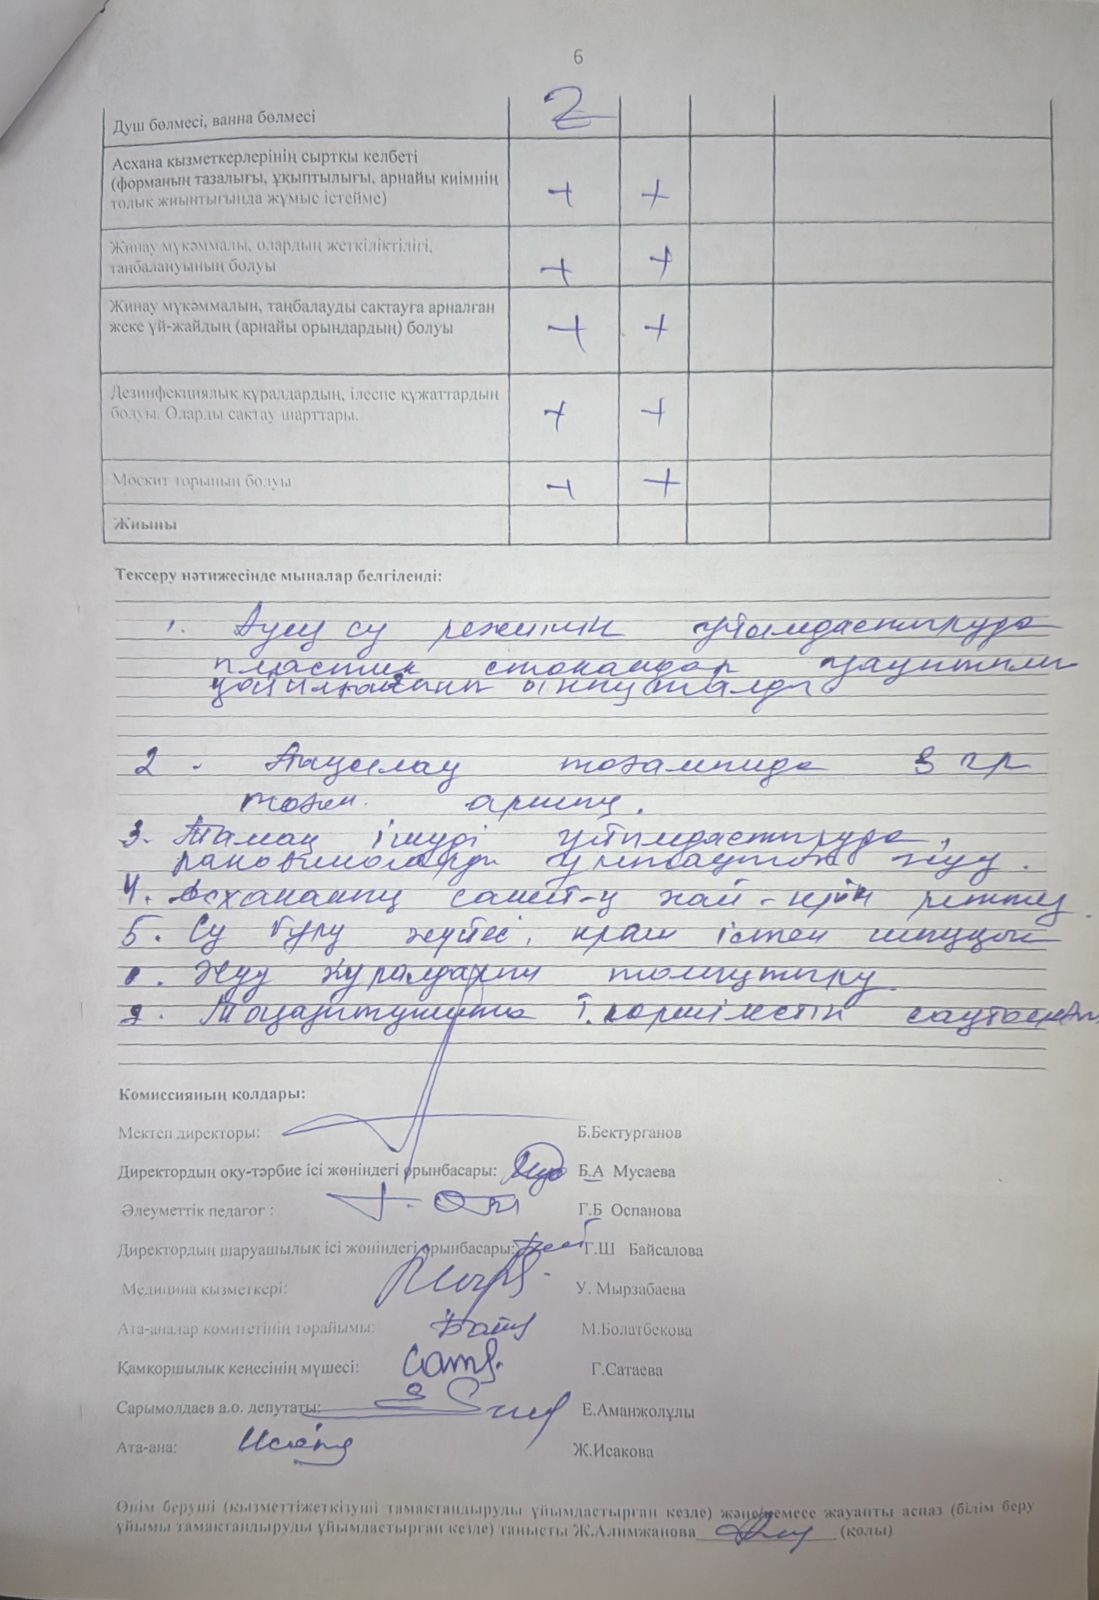 6
Душ бөлмесі, ванна бөлмесі 2
Асхана қызметкерлерінің сыртқы келбеті
(форманың тазалығы, ұқыптылығы, арнайы киімнің
толық жиынтығында жұмыс істейме) + +
Жинау мүкәммалы, олардың жеткіліктілігі,
таңбалануының болуы + +
Жинау мүкәммалын, таңбалауды сақтауға арналған
жеке үй-жайдың (арнайы орындардың) болуы + +
Дезинфекциялық құралдардың, ілеспе құжаттардың
болуы. Оларды сақтау шарттары. + +
Москит торының болуы + +
Жиыны
Тексеру нәтижесінде мыналар белгіленді:
1. Ауыз су режимін ұйымдастыруда
пластик стакандар
2.
3. Тамақ ішуді ұйымдастыруда,
жуу.
4. Асхананың жай - күйін реттеу
5. Су бұру жүйесі, кран істен шыққан
Жуу құралдарын толықтыру
Комиссияның қолдары:
Мектеп директоры: Б.Бектурганов
Директордың оқу-тәрбие ісі жөніндегі орынбасары: Б.А Мусаева
Әлеуметтік педагог : Г.Б Оспанова
Директордың шаруашылық ісі жөніндегі орынбасары: Г.Ш Байсалова
Медицина қызметкері: У. Мырзабаева
Ата-аналар комитетінің төрайымы: М.Болатбекова
Қамқоршылық кеңесінің мүшесі: Г.Сатаева
Сарымолдаев а.о. депутаты: Е.Аманжолұлы
Ата-ана: Ж.Исакова
Өнім беруші (қызметтіжеткізуші тамақтандыруды ұйымдастырған кезде) және/немесе жауапты аспаз (білім беру
ұйымы тамақтандыруды ұйымдастырған кезде) танысты Ж.Алимжанова (қолы)